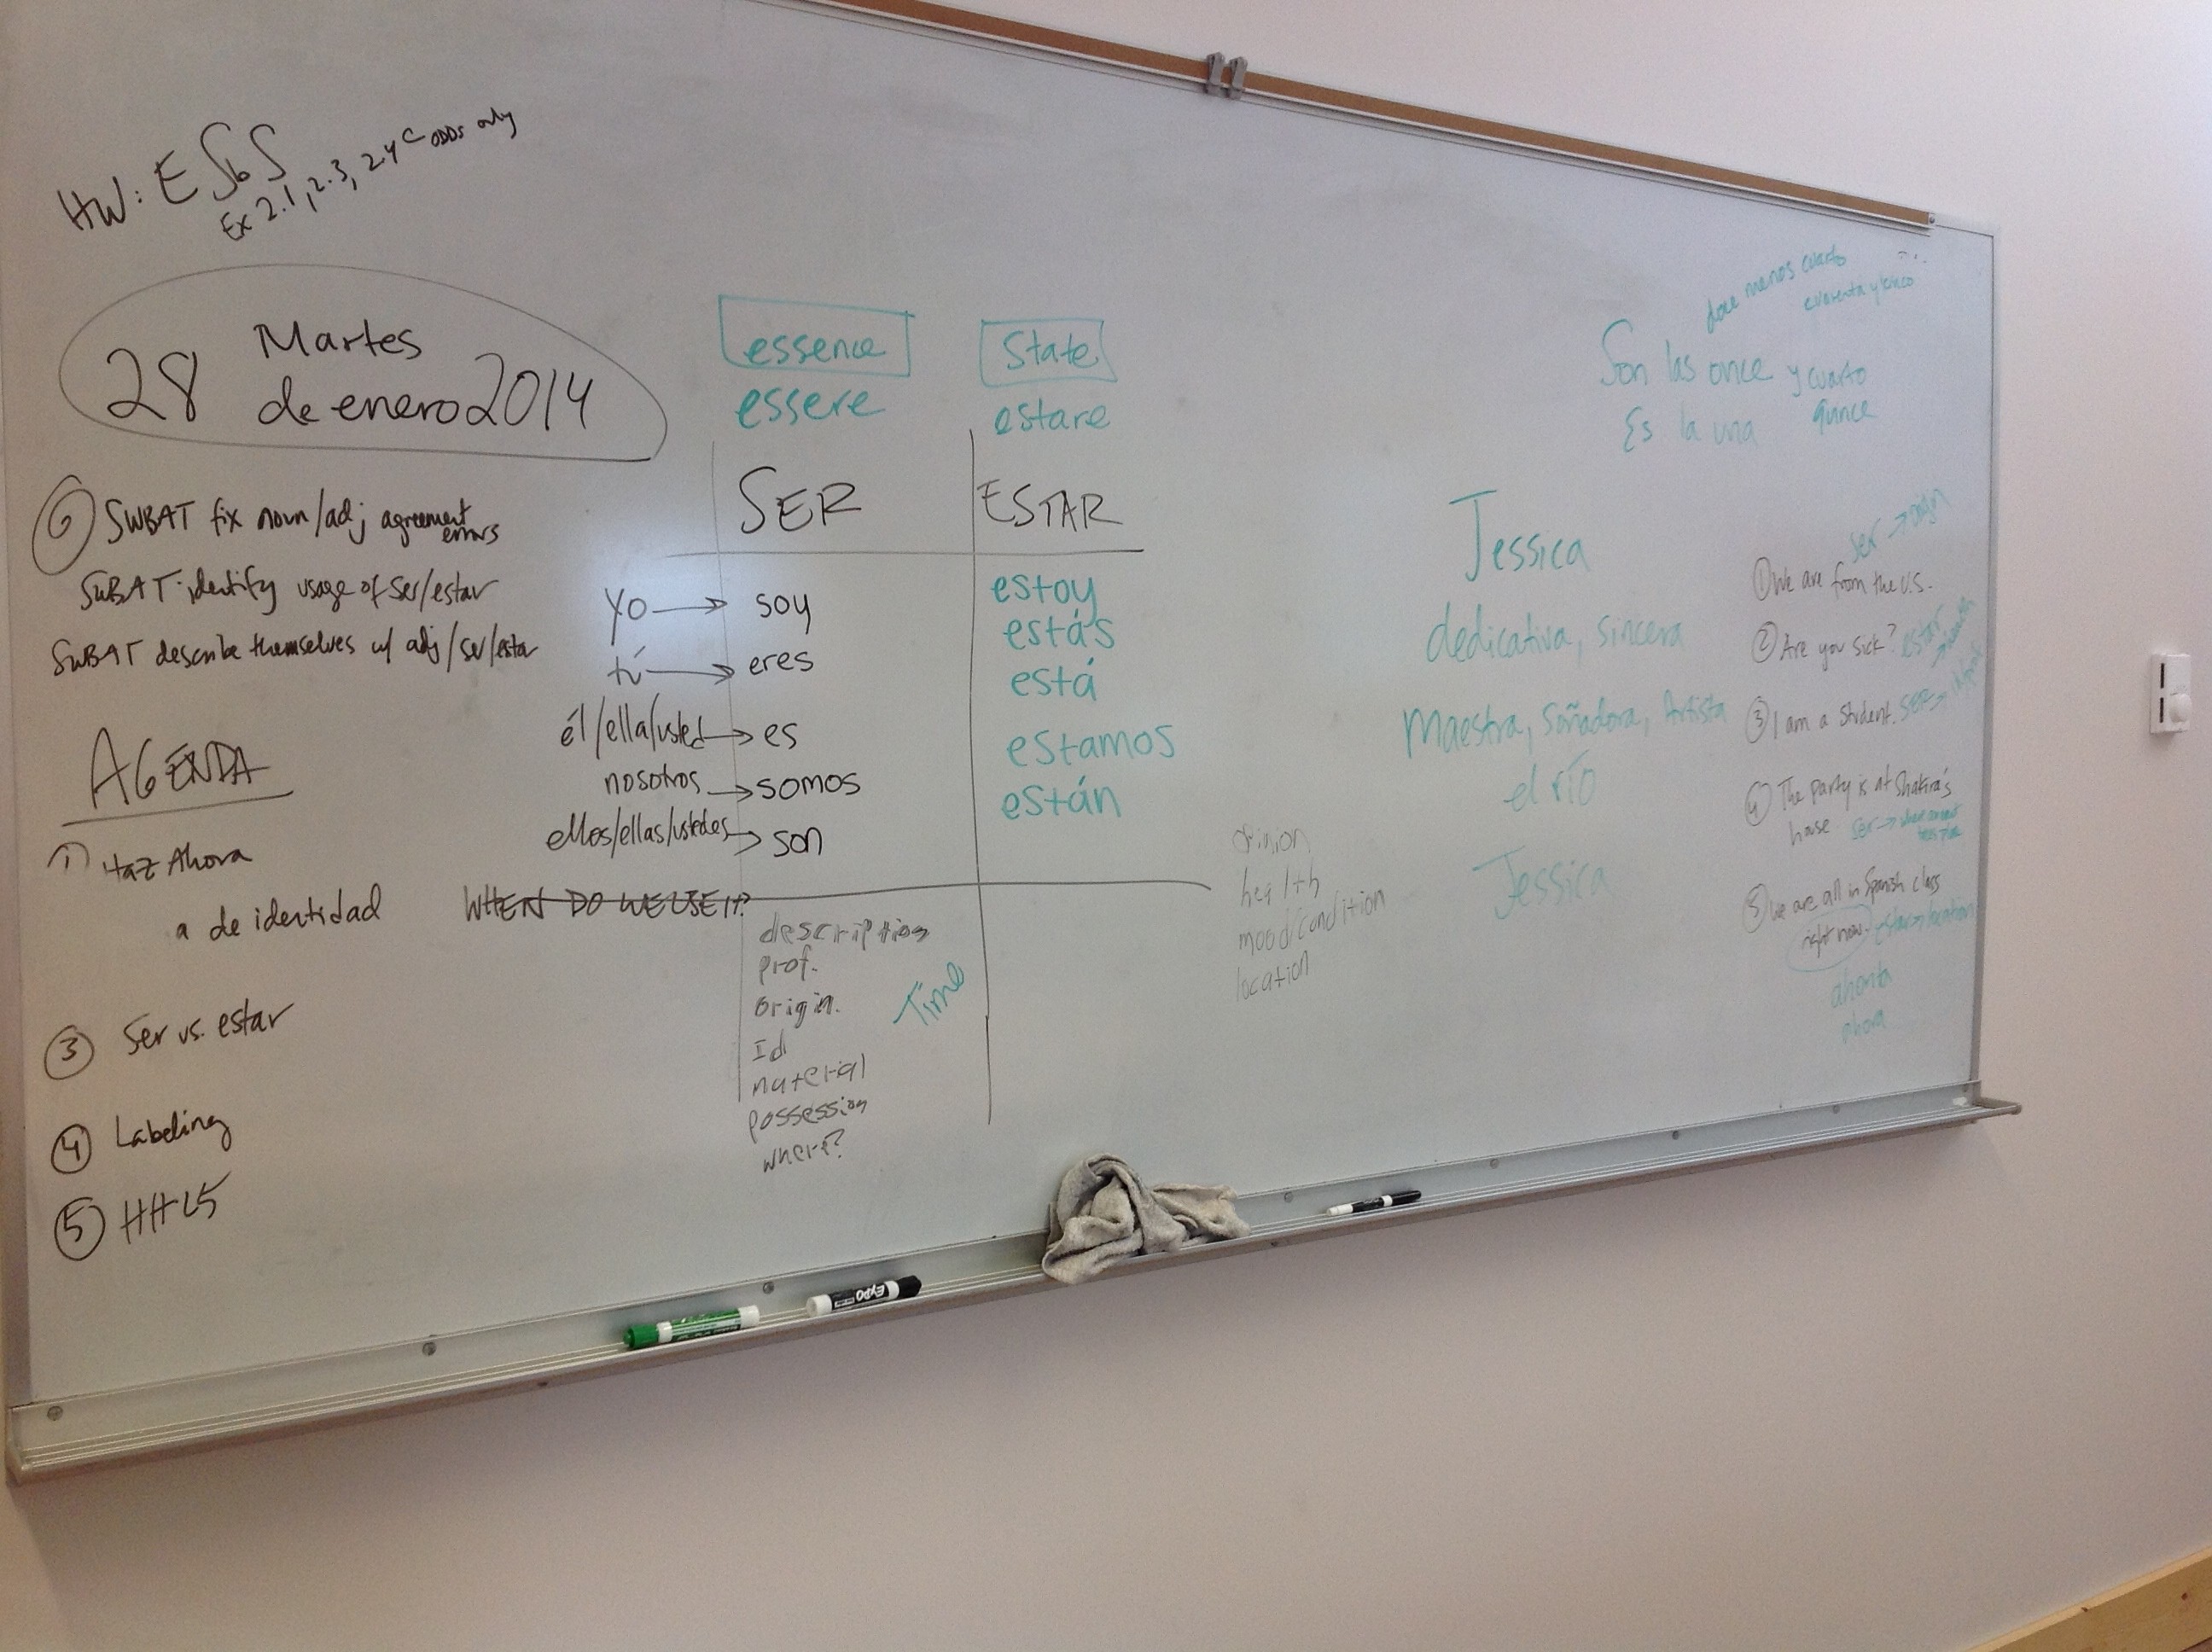 HW: ESbS
Ex 2.1, 2.3, 2.4 odds only
Martes
28 de enero 2014
SWBAT fix noun/adj agreement
errors
SWBAT identify usage of ser/estar
SWBAT describe themselves w/ adj/ser/estar
AGENDA
① Haz Ahora
a de identidad
③ Ser vs. estar
④ Labeling
⑤ HH L5
essence
essere
State
estare
SER
ESTAR
yo → soy
estoy
tú → eres
estás
él/ella/usted → es
está
nosotros → somos
estamos
ellos/ellas/ustedes → son
están
WHEN DO WE USE IT?
description
prof.
origin.
Id
material
possession
where?
Time
opinion
health
mood/condition
location
Jessica
dedicativa, sincera
Maestra, Soñadora, Artista
el río
Jessica
doce menos cuarto
cuarenta y cinco
Son las once y cuarto
quince
Es la una
ser → origin
① We are from the U.S.
② Are you sick? estar
③ I am a student. SER →
④ The party is at Shakira's
house ser → where
⑤ We are all in Spanish class
right now. estar → location
ahorita
ahora
EXPO